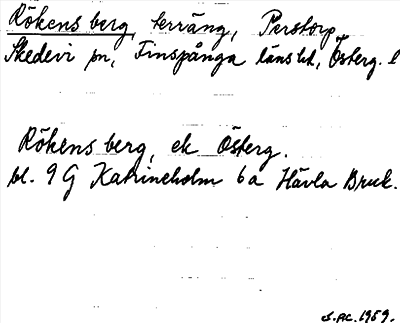 Rökens berg, terräng, Perstorp
Skedevi sn, Finspånga länshd, Österg. l
Rökens berg, ek Österg.
bl. 9 G Katrineholm 6a Hävla Bruk.
1959.